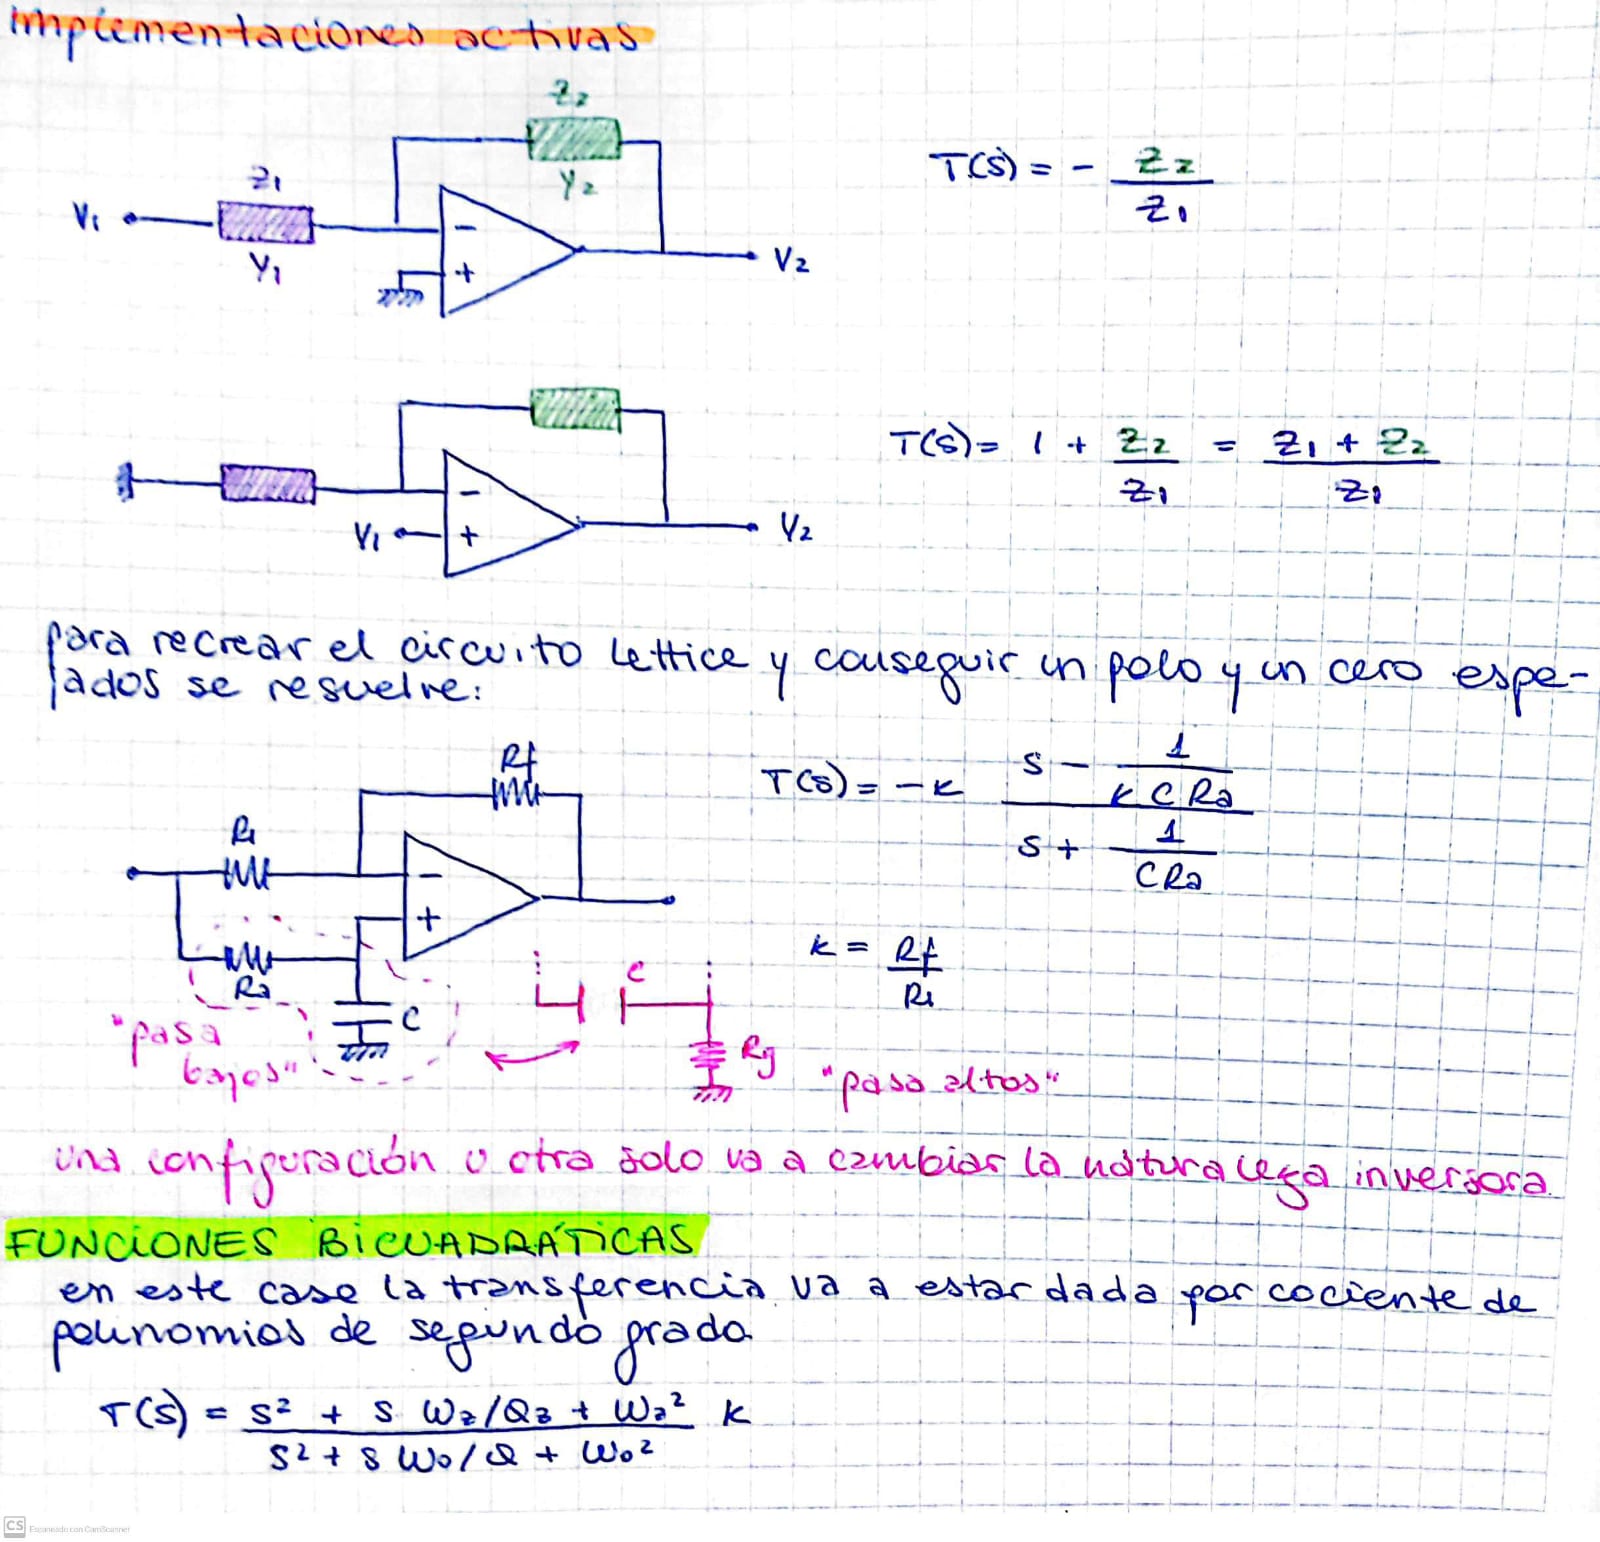 implementaciones activas
Z2
Y2
Z1
Y1
V1
-
+
V2
T(s) = - Z2 / Z1
T(s) = 1 + Z2 / Z1 = Z1 + Z2 / Z1
-
V1
+
V2
para recrear el circuito Lettice y conseguir un polo y un cero espe-
jados se resuelve:
Rf
R1
-
+
Ra
C
"pasa
bajos"
C
Rg
"pasa altos"
T(s) = - k s - 1 / k C Ra / s + 1 / C Ra
k = Rf / R1
una configuración u otra solo va a cambiar la naturaleza inversora.
FUNCIONES BICUADRÁTICAS
en este caso la transferencia va a estar dada por cociente de
polinomios de segundo grado
T(s) = s² + s Wz/Qz + Wz² / s² + s Wo/Q + Wo² k
CS Escaneado con CamScanner